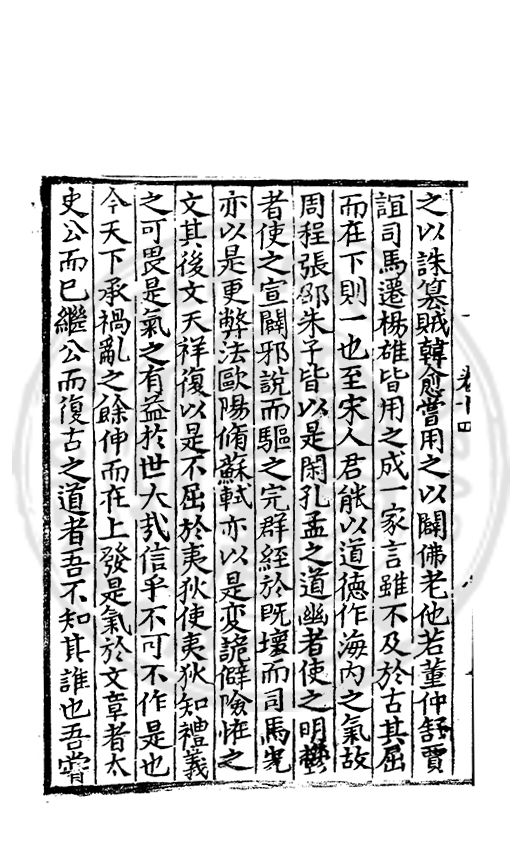 之以誅篡賊韓愈嘗用之以闢佛老他若董仲舒賈
誼司馬遷楊雄皆用之成一家言雖不及於古其屈
而在下則一也至宋人君能以道德作海內之氣故
周程張邵朱子皆以是閑孔孟之道幽者使之明鬱
者使之宣闢邪說而驅之完群經於既壞而司馬光
亦以是更弊法歐陽脩蘇軾亦以是變詭僻險怪之
文其後文天祥復以是不屈於夷狄使夷狄知禮義
之可畏是氣之有益於世大㢤信乎不可不作是也
今天下承禍亂之餘伸而在上發是氣於文章者太
史公而已繼公而復古之道者吾不知其誰也吾嘗
卷十四